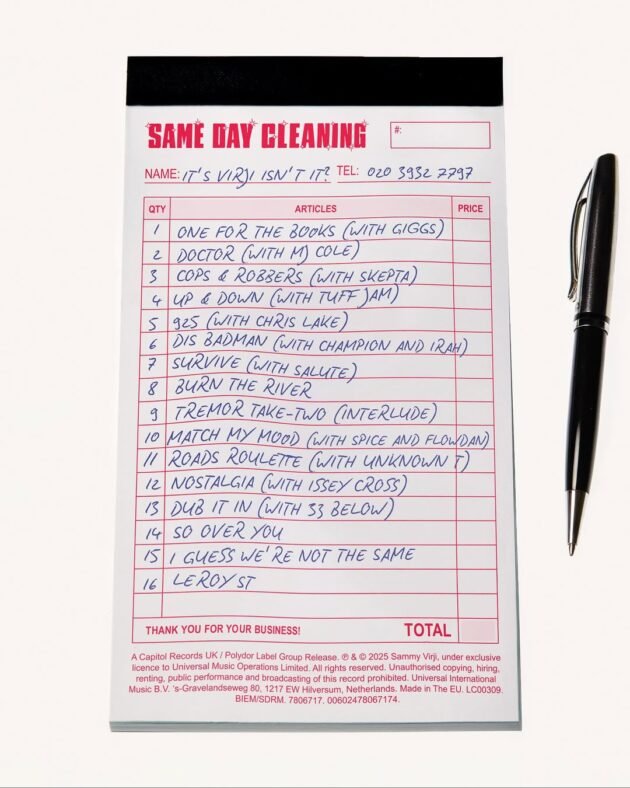 SAME DAY CLEANING
#:
NAME: IT'S VIRJI ISN'T IT? TEL: 020 3932 2797
QTY ARTICLES PRICE
1 ONE FOR THE BOOKS (WITH GIGGS)
2 DOCTOR (WITH MJ COLE)
3 COPS & ROBBERS (WITH SKEPTA)
4 UP & DOWN (WITH TUFF JAM)
5 925 (WITH CHRIS LAKE)
6 DIS BADMAN (WITH CHAMPION AND IRAH)
7 SURVIVE (WITH SALUTE)
8 BURN THE RIVER
9 TREMOR TAKE-TWO (INTERLUDE)
10 MATCH MY MOOD (WITH SPICE AND FLOWDAN)
11 ROADS ROULETTE (WITH UNKNOWN T)
12 NOSTALGIA (WITH ISSEY CROSS)
13 DUB IT IN (WITH 33 BELOW)
14 SO OVER YOU
15 I GUESS WE'RE NOT THE SAME
16 LEROY ST
THANK YOU FOR YOUR BUSINESS! TOTAL
A Capitol Records UK / Polydor Label Group Release. ℗ & © 2025 Sammy Virji, under exclusive
licence to Universal Music Operations Limited. All rights reserved. Unauthorised copying, hiring,
renting, public performance and broadcasting of this record prohibited. Universal International
Music B.V. 's-Gravelandseweg 80, 1217 EW Hilversum, Netherlands. Made in The EU. LC00309.
BIEM/SDRM. 7806717. 00602478067174.